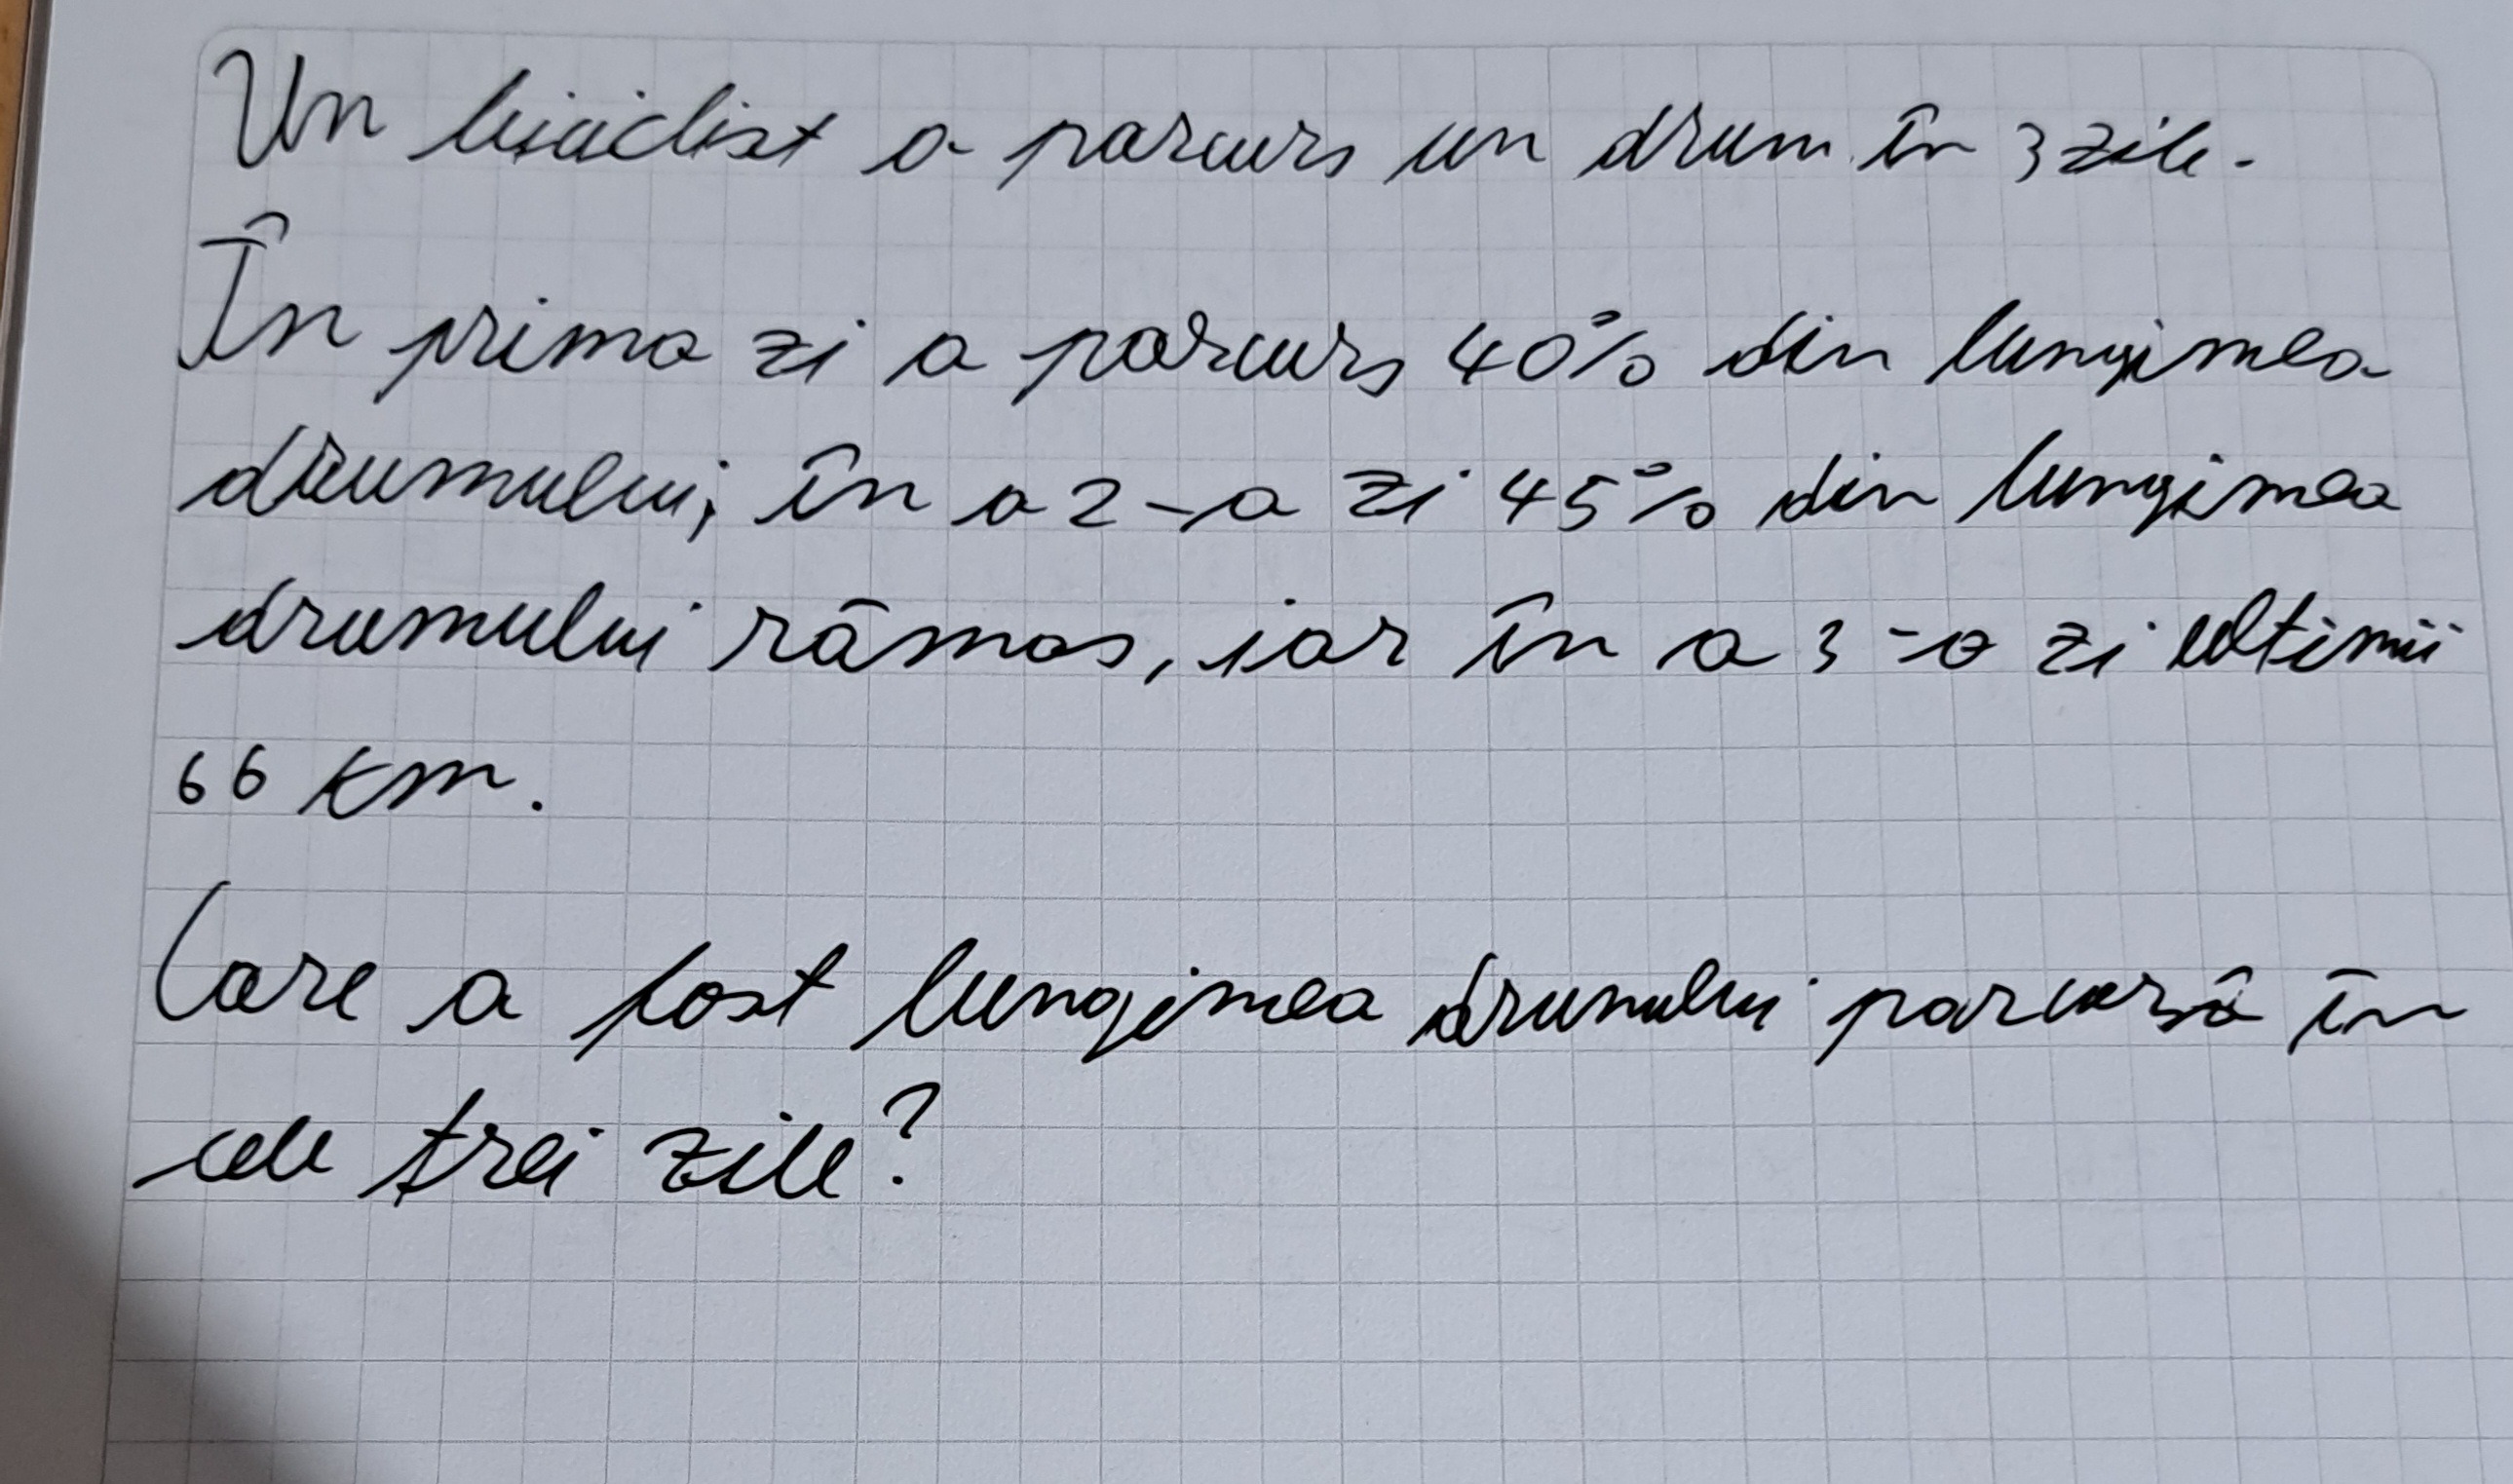 Un biciclist a parcurs un drum în 3 zile.
În prima zi a parcurs 40% din lungimea
drumului; în a 2-a zi 45% din lungimea
drumului rămas, iar în a 3-a zi ultimii
66 km.
Care a fost lungimea drumului parcursă în
cele trei zile?